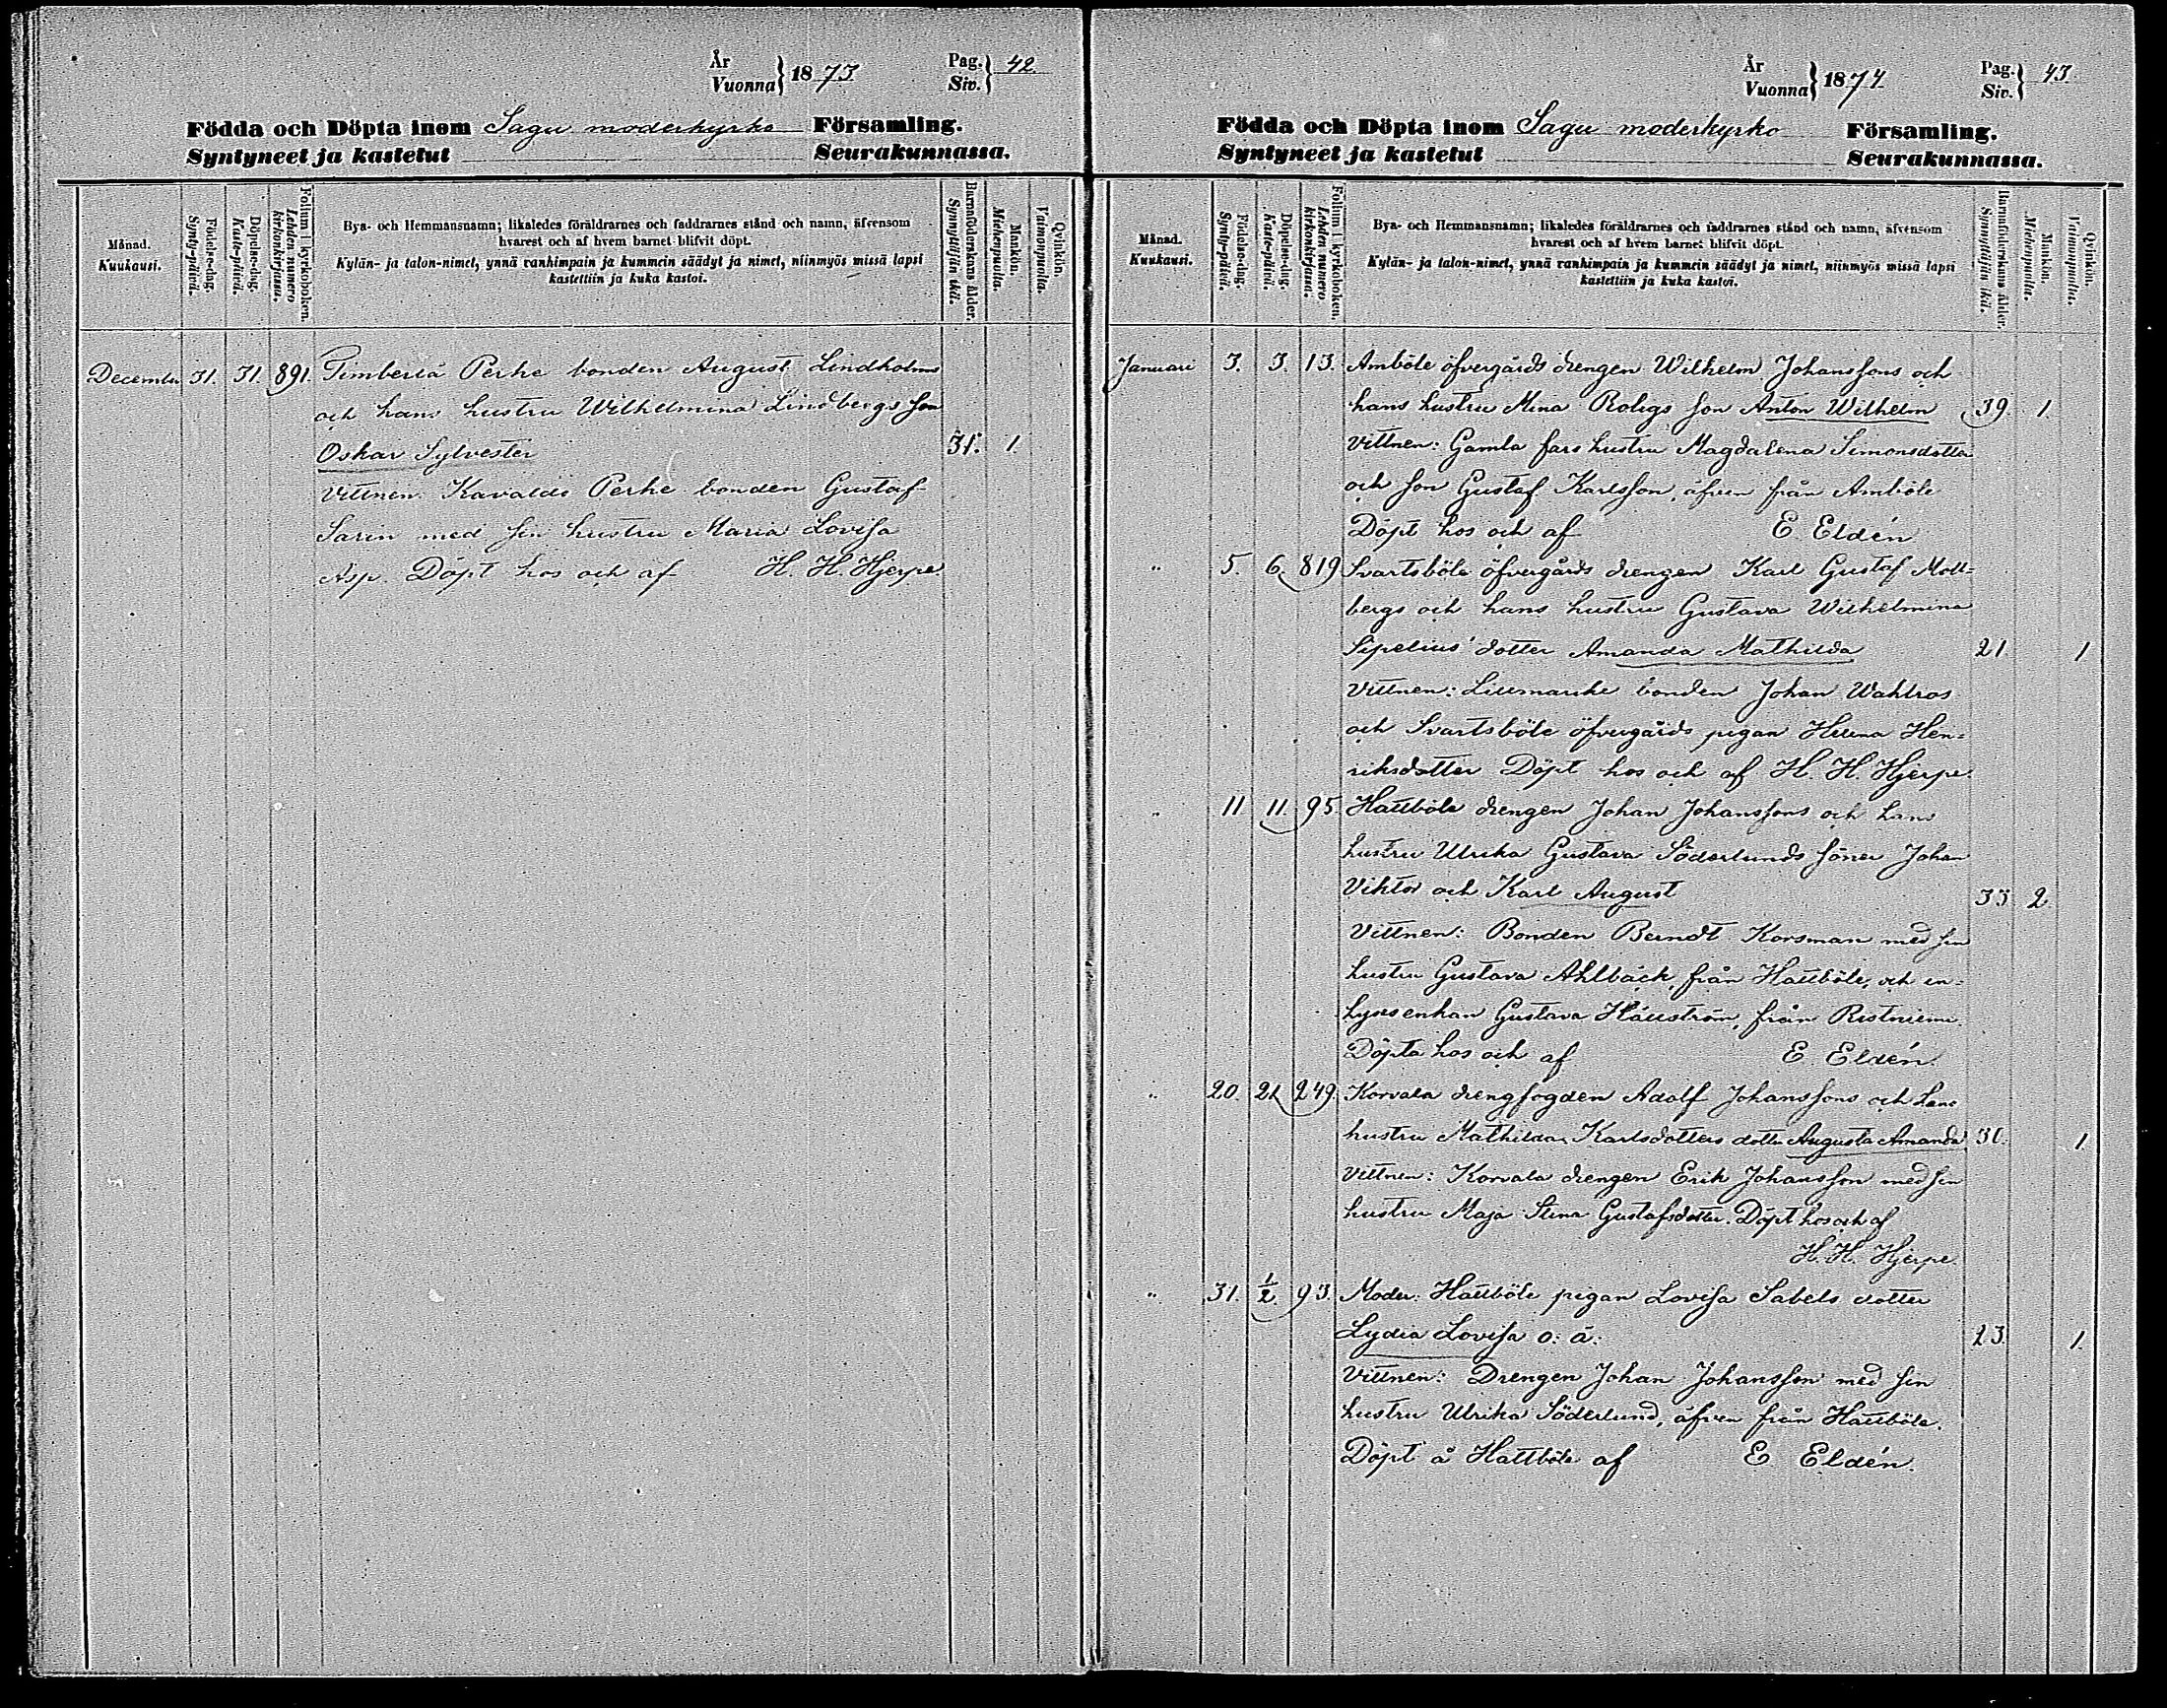 År
Vuonna } 1873.
Pag.
Siv. } 42.
Födda och Döpta inom Sagu moderkyrko Församling.
Syntyneet ja kastetut Seurakunnassa.
Månad.
Kuukausi.
Födelse-dag.
Synty-päivä.
Döpelse-dag.
Kaste-päivä.
Folium i kyrkoboken.
Lehden numero kirkonkirjassa.
Bya- och Hemmansnamn; likaledes föräldrarnes och faddrarnes stånd och namn, äfvensom
hvarest och af hvem barnet blifvit döpt.
Kylän- ja talon-nimet, ynnä vanhimpain ja kummein säädyt ja nimet, niinmyös missä lapsi
kastettiin ja kuka kastoi.
Barnaföderskans ålder.
Synnyttäjän ikä.
Mankön.
Miehenpuolia.
Qvinkön.
Vaimonpuolia.
December 31. 31. 891. Timberlä Perhe bonden August Lindholms
och hans hustru Wilhelmina Lindbergs son
Oskar Sylvester 31. 1
Vittnen. Kavaldi Perhe bonden Gustaf
Sarin med sin hustru Maria Lovisa
Asp. Döpt hos och af H. H. Hjerpe.
År
Vuonna } 1874
Pag.
Siv. } 43.
Födda och Döpta inom Sagu moderkyrko Församling.
Syntyneet ja kastetut Seurakunnassa.
Månad.
Kuukausi.
Födelse-dag.
Synty-päivä.
Döpelse-dag.
Kaste-päivä.
Folium i kyrkoboken.
Lehden numero kirkonkirjassa.
Bya- och Hemmansnamn; likaledes föräldrarnes och faddrarnes stånd och namn, äfvensom
hvarest och af hvem barnet blifvit döpt.
Kylän- ja talon-nimet, ynnä vanhimpain ja kummein säädyt ja nimet, niinmyös missä lapsi
kastettiin ja kuka kastoi.
Barnaföderskans ålder.
Synnyttäjän ikä.
Mankön.
Miehenpuolia.
Qvinkön.
Vaimonpuolia.
Januari 3. 3. 13. Amböle öfvergårds drengen Wilhelm Johanssons och
hans hustru Mina Roligs son Anton Wilhelm 39 1.
Vittnen: Gamla fars hustru Magdalena Simonsdotter
och son Gustaf Karlsson, äfven från Amböle
Döpt hos och af E. Eldén.
" 5. 6. 819 Svartsböle öfvergårds drengen Karl Gustaf Moll-
bergs och hans hustru Gustava Wilhelmina
Sipelius' dotter Amanda Mathilda 21 1
Vittnen: bonden Johan Wahlros
och Svartsböle öfvergårds pigan Helena Hen=
riksdotter Döpt hos och af H. H. Hjerpe.
" 11 11. 95. Hattböle drengen Johan Johanssons och hans
hustru Ulrika Gustava Söderlunds söner Johan
Viktor och Karl August 33 2
Vittnen: Bonden Berndt Korsman med sin
hustru Gustava Ahlbäck, från Hattböle, och en-
Gustava Hällström, från Ristniemi.
Döpta hos och af E. Eldén.
" 20. 21. 249. Korvala drengfogden Adolf Johanssons och hans
hustru Mathilda Karlsdotters dotter Augusta Amanda 30. 1.
Vittnen: Korvala drengen Erik Johansson med sin
hustru Maja Stina Gustafsdotter. Döpt hos och af
H. H. Hjerpe.
" 31. 1/2. 93. Moder: Hattböle pigan Lovisa Sabels dotter
Lydia Lovisa o: ä: 23. 1.
Vittnen: Drengen Johan Johansson med sin
hustru Ulrika Söderlund, äfven från Hattböle.
Döpt å Hattböle af E Eldén.